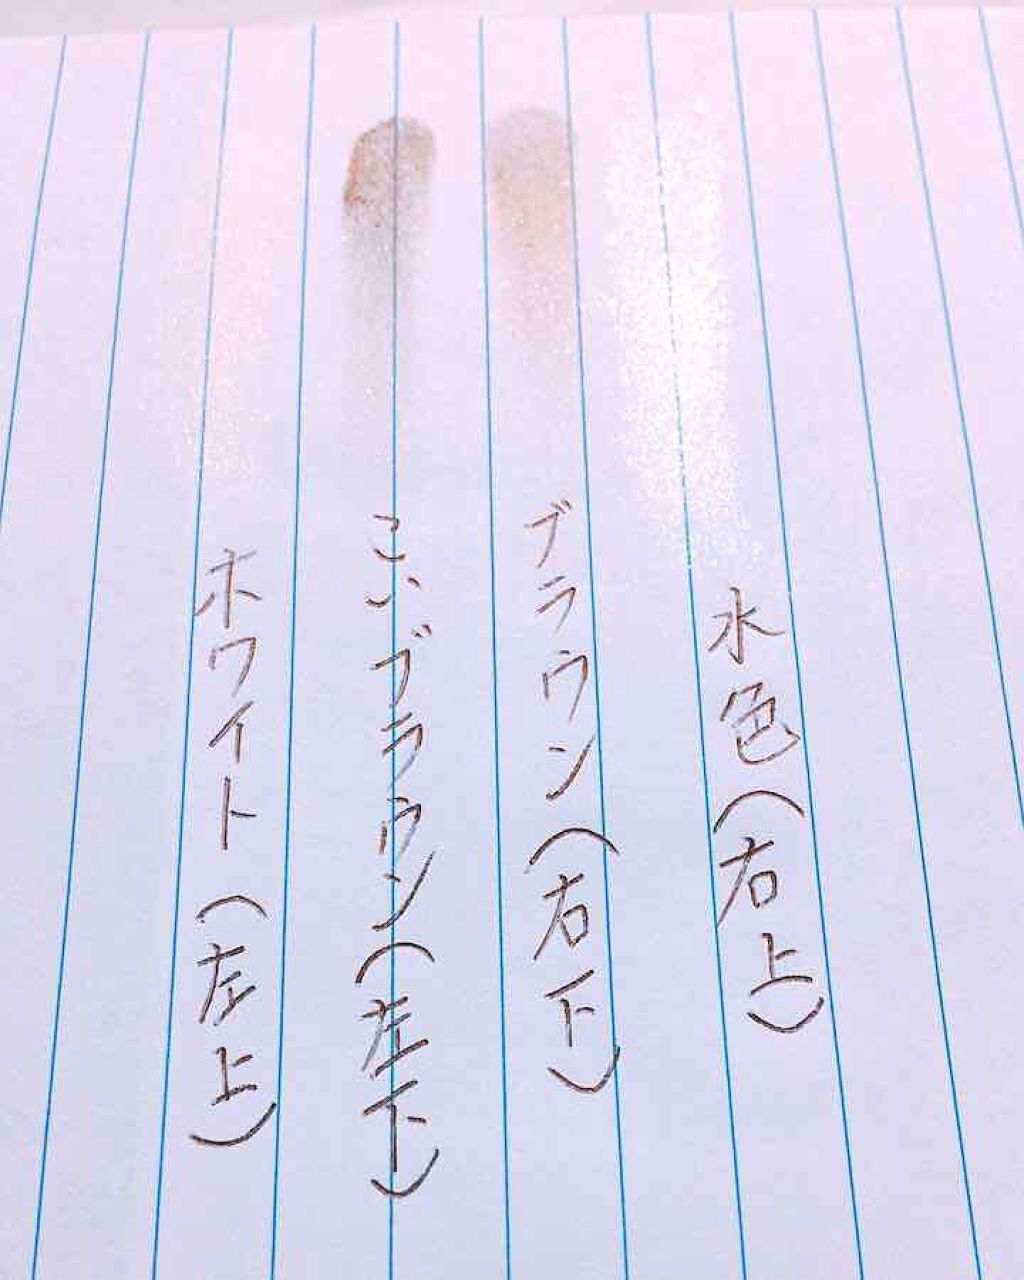 水色(右上)
ブラウン(右下)
こいブラウン(左下)
ホワイト(左上)